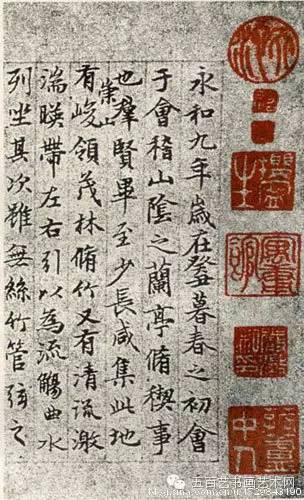 永和九年歲在癸丑暮春之初會
于會稽山陰之蘭亭脩稧事
也羣賢畢至少長咸集此地
有崇山峻領茂林脩竹又有清流激
湍暎帶左右引以為流觴曲水
列坐其次雖無絲竹管弦之
五百艺书画艺术网